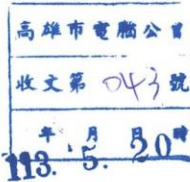 高雄市電腦公會
收文第 043 號
年 月 日 時
113. 5. 20